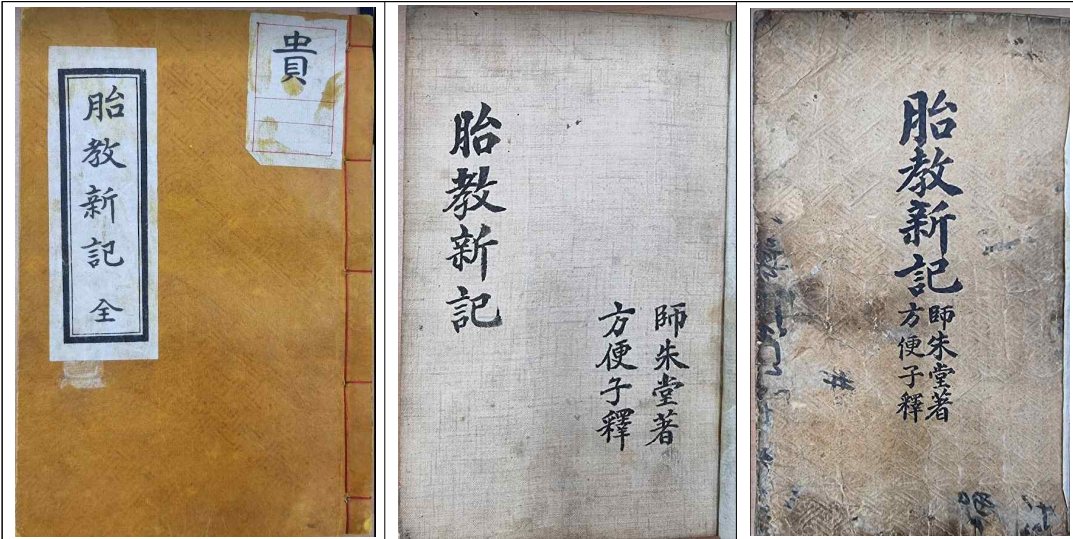 貴
胎教新記 全
胎教新記
師朱堂著
方便子釋
胎教新記
師朱堂著
方便子釋